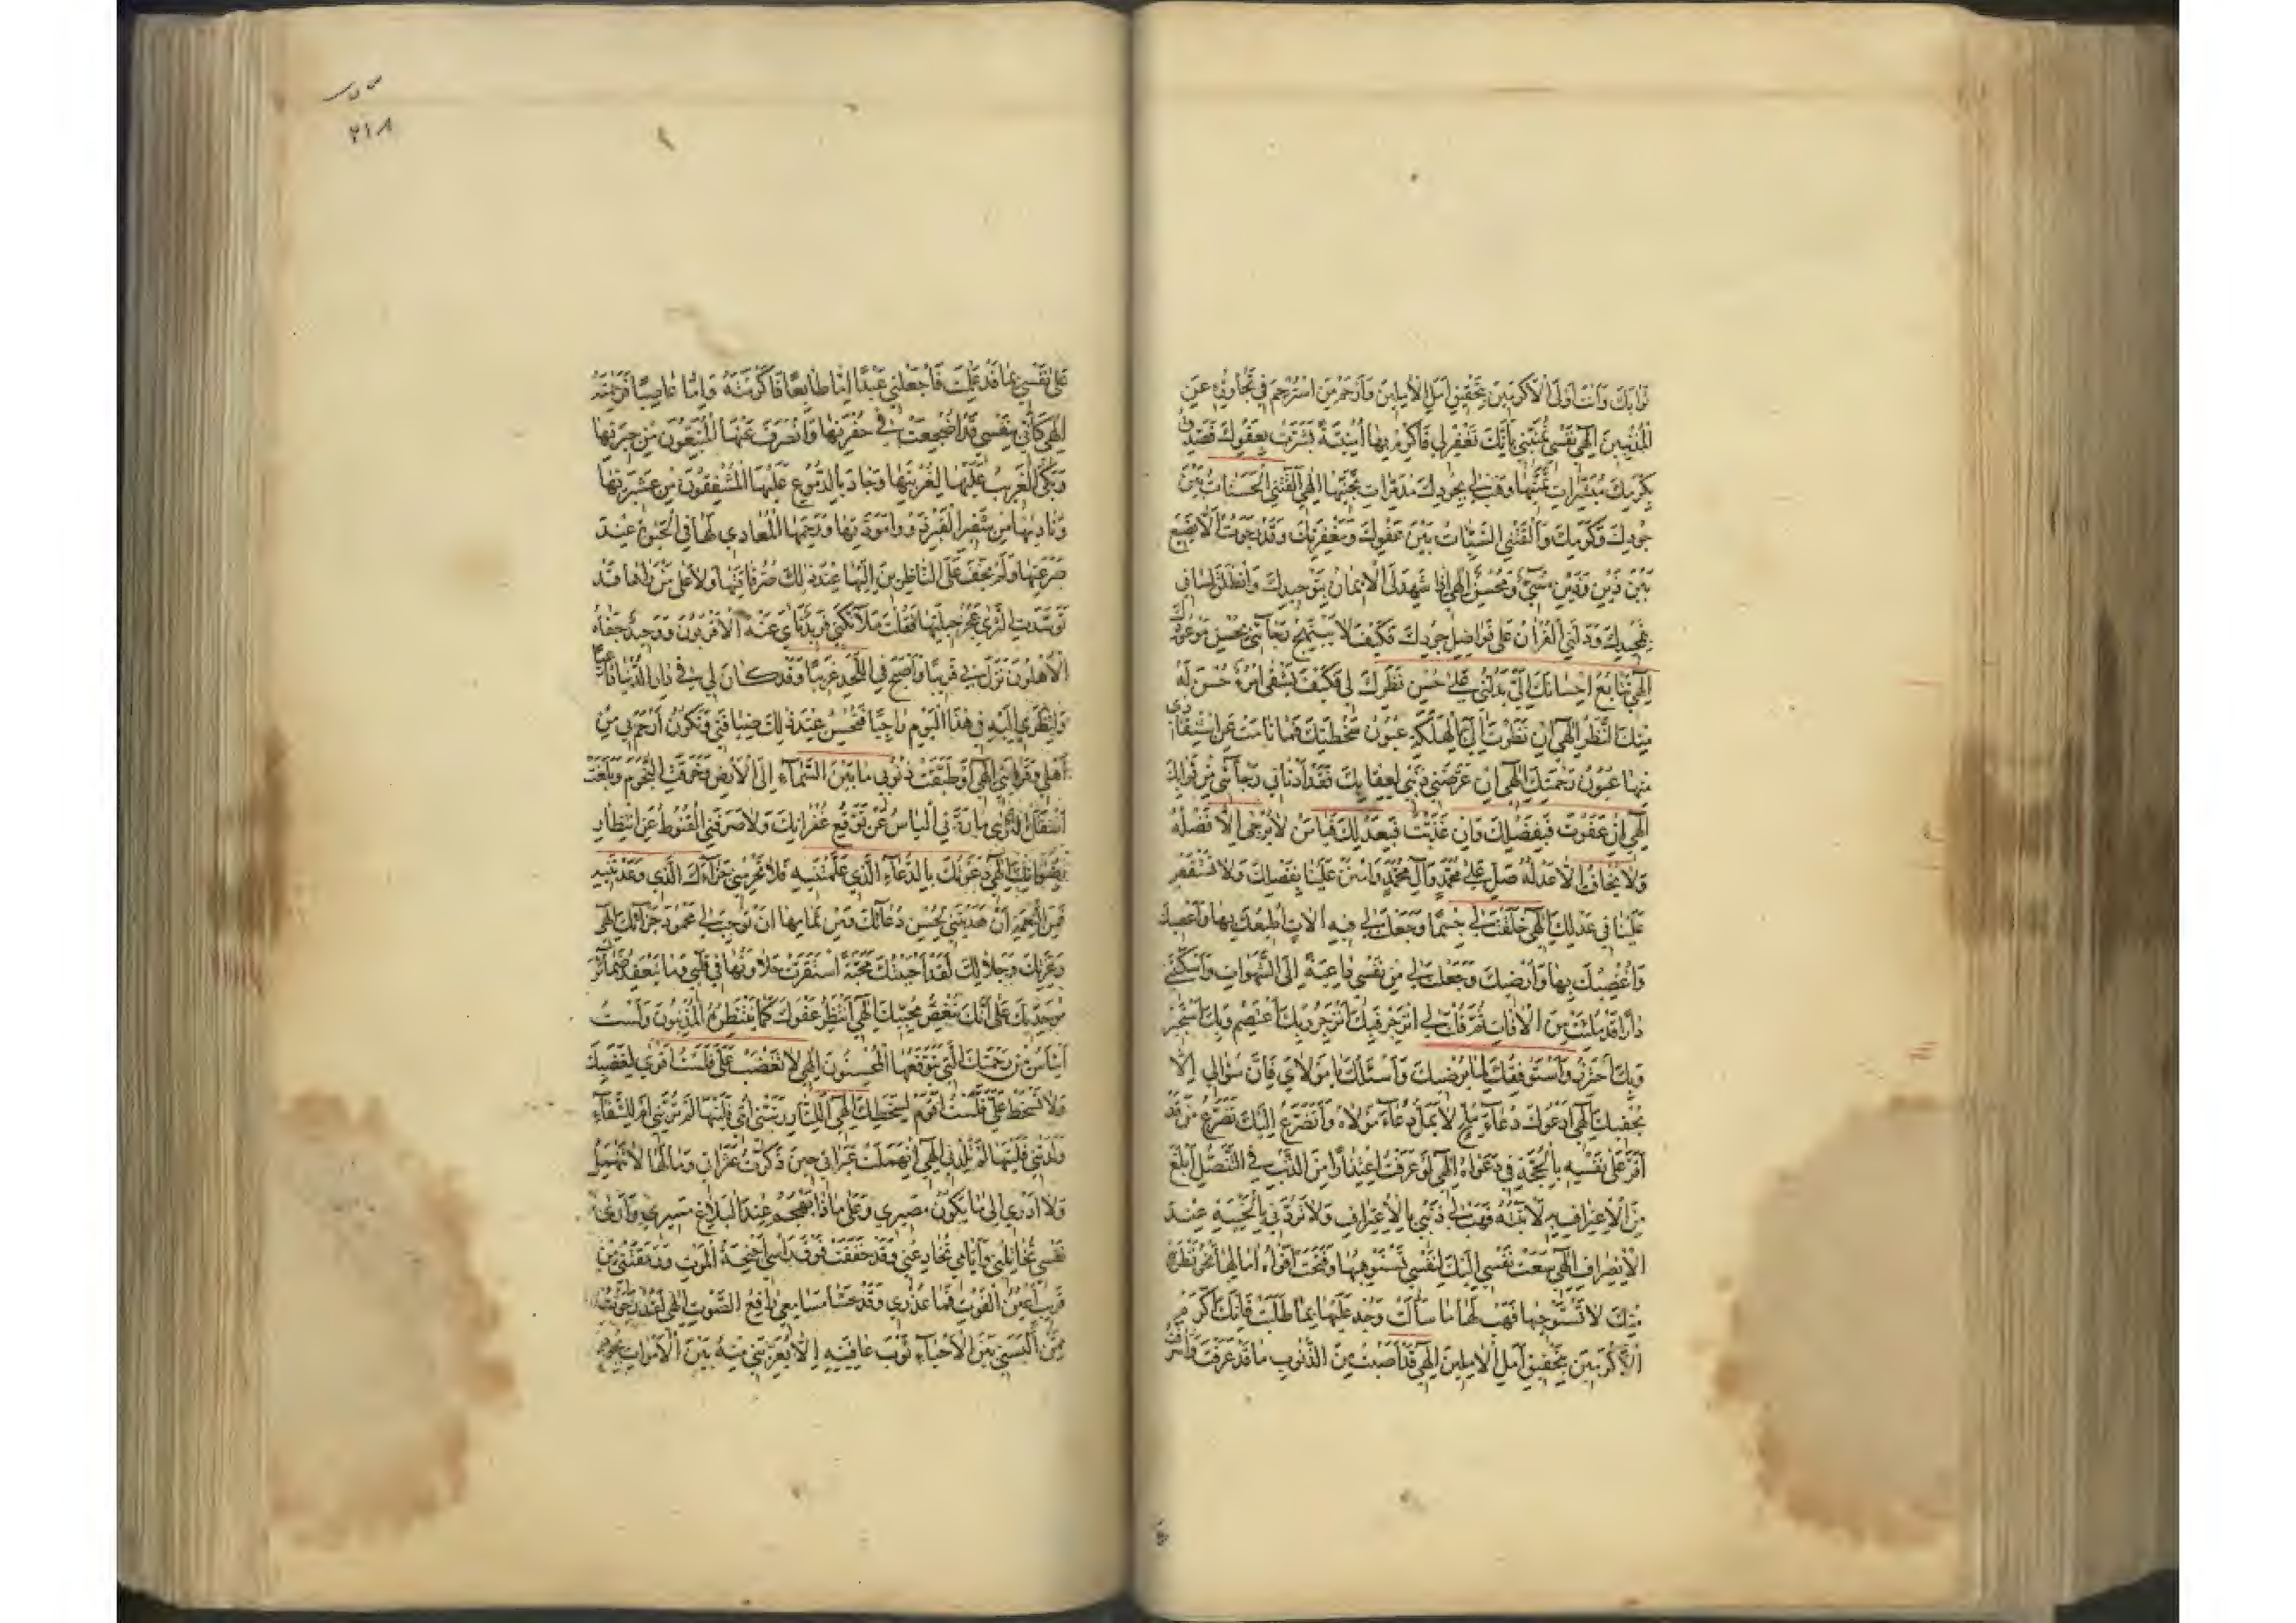 ثَوابَكَ وَاَنْتَ اَوْلَى الْاَكْرَمينَ بِتَحْقيقِ اَمَلِ الْاٰمِلينَ وَاَرْحَمُ مَنِ اسْتُرْحِمَ فى تَجاوُزِهِ عَنِ
الْمُذْنِبينَ اِلٰهى نَفْسى تُمَنّينى بِاَنَّكَ تَغْفِرُ لى فَاَكْرِمْ بِها اُمْنِيَّةً بَشَّرَتْ بِعَفْوِكَ فَصَدِّقْ
بِكَرَمِكَ مُبَشِّراتِ تَمَنّيها وَهَبْ لى بِجُودِكَ مُدَمِّراتِ تَجَنّيها اِلٰهى اَلْقَتْنِى الْحَسَناتُ بَيْنَ
جُودِكَ وَكَرَمِكَ وَاَلْقَتْنِى السَّيِّئاتُ بَيْنَ عَفْوِكَ وَمَغْفِرَتِكَ وَقَدْ رَجَوْتُ اَلّا يَضيعَ
بَيْنَ ذَيْنِ وَذَيْنِ مُسيءٌ وَمُحْسِنٌ اِلٰهى اِذا شَهِدَ لِىَ الْايمانُ بِتَوْحيدِكَ وَانْطَلَقَ لِسانى
بِتَمْجيدِكَ وَدَلَّنِى الْقُرْاٰنُ عَلى فَواضِلِ جُودِكَ فَكَيْفَ لا يَبْتَهِجُ رَجآئى بِحُسْنِ مَوْعُودِكَ
اِلٰهى تَتابُعُ اِحْسانِكَ اِلَىَّ يَدُلُّنى عَلى حُسْنِ نَظَرِكَ لى فَكَيْفَ يَشْقَى امْرُؤٌ حَسُنَ لَهُ
مِنْكَ النَّظَرُ اِلٰهى اِنْ نَظَرَتْ اِلَىَّ بِالْهَلَكَةِ عُيُونُ سَخْطَتِكَ فَما نامَتْ عَنِ اسْتِنْقاذى
مِنْها عُيُونُ رَحْمَتِكَ اِلٰهى اِنْ عَرَّضَنى ذَنْبى لِعِقابِكَ فَقَدْ اَدْنانى رَجآئى مِنْ ثَوابِكَ
اِلٰهى اِنْ عَفَوْتَ فَبِفَضْلِكَ وَاِنْ عَذَّبْتَ فَبِعَدْلِكَ فَيا مَنْ لا يُرْجى اِلّا فَضْلُهُ
وَلا يُخافُ اِلّا عَدْلُهُ صَلِّ عَلى مُحَمَّدٍ وَاٰلِ مُحَمَّدٍ وَامْنُنْ عَلَيْنا بِفَضْلِكَ وَلا تَسْتَقْصِ
عَلَيْنا فى عَدْلِكَ اِلٰهى خَلَقْتَ لى جِسْمًا وَجَعَلْتَ لى فيهِ اٰلاتٍ اُطيعُكَ بِها وَاَعْصيكَ
وَاُغْضِبُكَ بِها وَاُرْضيكَ وَجَعَلْتَ لى مِنْ نَفْسى داعِيَةً اِلَى الشَّهَواتِ وَاَسْكَنْتَنى
دارًا قَدْ مُلِئَتْ مِنَ الْاٰفاتِ ثُمَّ قُلْتَ لِىَ انْزَجِرْ فَبِكَ اَنْزَجِرُ وَبِكَ اَعْتَصِمُ وَبِكَ اَسْتَجيرُ
وَبِكَ اَحْتَرِزُ وَاَسْتَوْفِقُكَ لِما يُرْضيكَ وَاَسْئَلُكَ يا مَوْلاىَ فَاِنَّ سُؤالى لا
يُحْفيكَ اِلٰهى اَدْعُوكَ دُعآءَ مُلِحٍّ لا يَمَلُّ دُعآءَ مَوْلاهُ وَاَتَضَرَّعُ اِلَيْكَ تَضَرُّعَ مَنْ قَدْ
اَقَرَّ عَلى نَفْسِهِ بِالْحُجَّةِ فى دَعْواهُ اِلٰهى لَوْ عَرَفْتُ اعْتِذارًا مِنَ الذَّنْبِ فِى التَّنَصُّلِ اَبْلَغَ
مِنَ الْاِعْتِرافِ بِهِ لَاَتَيْتُهُ فَهَبْ لى ذَنْبى بِالْاِعْتِرافِ وَلا تَرُدَّنى بِالْخَيْبَةِ عِنْدَ
الْاِنْصِرافِ اِلٰهى سَعَتْ نَفْسى اِلَيْكَ لِنَفْسى تَسْتَوْهِبُها وَفَتَحَتْ اَفْواهَ اٰمالِها نَحْوَ نَظْرَةٍ
مِنْكَ لا تَسْتَوْجِبُها فَهَبْ لَها ما سَاَلَتْ وَجُدْ عَلَيْها بِما طَلَبَتْ فَاِنَّكَ اَكْرَمُ
الْاَكْرَمينَ بِتَحْقيقِ اَمَلِ الْاٰمِلينَ اِلٰهى قَدْ اَصَبْتُ مِنَ الذُّنُوبِ ما قَدْ عَرَفْتَ وَاَسْرَفْتُ
س ى س
٢١٨
عَلى نَفْسى بِما قَدْ عَلِمْتَ فَاجْعَلْنى عَبْدًا اِمّا طائِعًا فَاَكْرَمْتَهُ وَاِمّا عاصِيًا فَرَحِمْتَهُ
اِلٰهى كَاَنّى بِنَفْسى قَدْ اُضْجِعَتْ فى حُفْرَتِها وَانْصَرَفَ عَنْهَا الْمُشَيِّعُونَ مِنْ جيرَتِها
وَبَكَى الْغَريبُ عَلَيْها لِغُرْبَتِها وَجادَ بِالدُّمُوعِ عَلَيْهَا الْمُشْفِقُونَ مِنْ عَشيرَتِها
وَناداها مِنْ شَفيرِ الْقَبْرِ ذَوُو مَوَدَّتِها وَرَحِمَهَا الْمُعادى لَها فِى الْحَيٰوةِ عِنْدَ
صَرْعَتِها وَلَمْ يَخْفَ عَلَى النّاظِرينَ اِلَيْها عِنْدَ ذٰلِكَ ضُرُّ فاقَتِها وَلا عَلى مَنْ رَاٰها قَدْ
تَوَسَّدَتِ الثَّرى عَجْزُ حيلَتِها فَقُلْتَ مَلآئِكَتى فَريدٌ نَاٰى عَنْهُ الْاَقْرَبُونَ وَوَحيدٌ جَفاهُ
الْاَهْلُونَ نَزَلَ بى قَريبًا وَاَصْبَحَ فِى اللَّحْدِ غَريبًا وَقَدْ كانَ لى فى دارِ الدُّنْيا داعِيًا
وَلِنَظَرى اِلَيْهِ فى هٰذَا الْيَوْمِ راجِيًا فَتُحْسِنُ عِنْدَ ذٰلِكَ ضِيافَتى وَتَكُونُ اَرْحَمَ بى مِنْ
اَهْلى وَقَرابَتى اِلٰهى لَوْ طَبَّقَتْ ذُنُوبى ما بَيْنَ السَّمآءِ اِلَى الْاَرْضِ وَخَرَقَتِ النُّجُومَ وَبَلَغَتْ
اَسْفَلَ الثَّرى ما رَدَّنِى الْيَأْسُ عَنْ تَوَقُّعِ غُفْرانِكَ وَلا صَرَفَنِى الْقُنُوطُ عَنِ انْتِظارِ
رِضْوانِكَ اِلٰهى دَعَوْتُكَ بِالدُّعآءِ الَّذى عَلَّمْتَنيهِ فَلا تَحْرِمْنى جَزآءَكَ الَّذى وَعَدْتَنيهِ
فَمِنَ النِّعْمَةِ اَنْ هَدَيْتَنى لِحُسْنِ دُعآئِكَ وَمِنْ تَمامِها اَنْ تُوجِبَ لى مَحْمُودَ جَزآئِكَ اِلٰهى
وَعِزَّتِكَ وَجَلالِكَ لَقَدْ اَحْبَبْتُكَ مَحَبَّةً اسْتَقَرَّتْ حَلاوَتُها فى قَلْبى وَما تَنْعَقِدُ ضَمآئِرُ
مُوَحِّديكَ عَلى اَنَّكَ تُبْغِضُ مُحِبّيكَ اِلٰهى اَنْتَظِرُ عَفْوَكَ كَما يَنْتَظِرُهُ الْمُذْنِبُونَ وَلَسْتُ
اَيْاَسُ مِنْ رَحْمَتِكَ الَّتى يَتَوَقَّعُهَا الْمُحْسِنُونَ اِلٰهى لا تَغْضَبْ عَلَىَّ فَلَسْتُ اَقْوى لِغَضَبِكَ
وَلا تَسْخَطْ عَلَىَّ فَلَسْتُ اَقُومُ لِسَخَطِكَ اِلٰهى اَلِلنّارِ رَبَّتْنى اُمّى فَلَيْتَها لَمْ تُرَبِّنى اَمْ لِلشَّقآءِ
وَلَدَتْنى فَلَيْتَها لَمْ تَلِدْنى اِلٰهى انْهَمَلَتْ عَبَراتى حينَ ذَكَرْتُ عَثَراتى وَما لَها لا تَنْهَمِلُ
وَلا اَدْرى اِلى ما يَكُونُ مَصيرى وَعَلى ماذا يَهْجُمُ عِنْدَ الْبَلاغِ مَسيرى وَاَرى
نَفْسى تُخاتِلُنى وَاَيّامى تُخادِعُنى وَقَدْ خَفَقَتْ فَوْقَ رَأْسى اَجْنِحَةُ الْمَوْتِ وَرَمَقَتْنى مِنْ
قَريبٍ عُيُنُ الْفَوْتِ فَما عُذْرى وَقَدْ حَشا مَسامِعى رافِعُ الصَّوْتِ اِلٰهى لَقَدْ رَجَوْتُ
مِمَّنْ اَلْبَسَنى بَيْنَ الْاَحْيآءِ ثَوْبَ عافِيَتِهِ اَلّا يُعْرِيَنى مِنْهُ بَيْنَ الْاَمْواتِ بِجُودِ